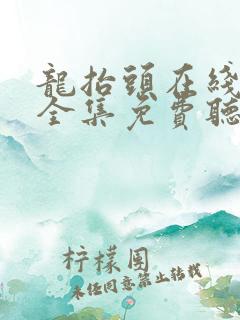 龍抬頭在綫
全集免費聽
柠檬围
未经同意禁止转载